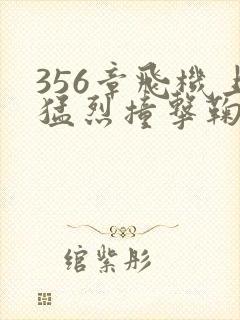 356章飛機上
猛烈撞擊鞠
綰紫彤